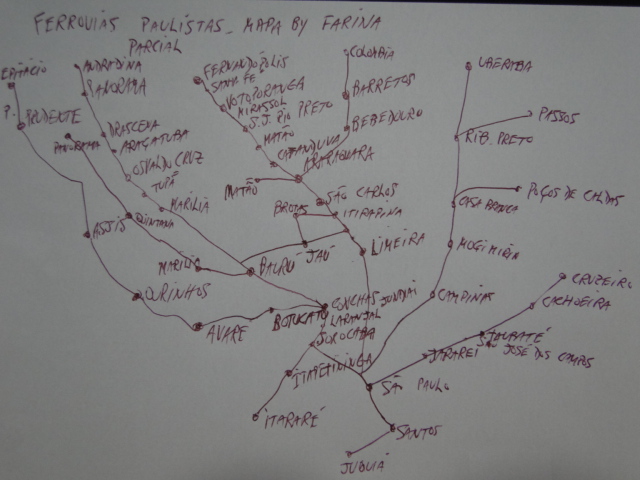 FERROVIAS PAULISTAS_ MAPA BY FARINA
PARCIAL
EPITACIO
P. PRUDENTE
ANDRADINA
PANORAMA
DRACENA
ARAÇATUBA
PANORAMA
OSVALDO CRUZ
TUPÃ
MARILIA
QUINTANA
ASSIS
MARILIA
OURINHOS
AVARÉ
BAURU
FERNANDÓPOLIS
SANTA FÉ
VOTOPORANGA
MIRASSOL
S.J. RIO PRETO
MATÃO
CATANDUVA
ARARAQUARA
MATÃO
COLOMBIA
BARRETOS
BEBEDOURO
SÃO CARLOS
BROTAS
ITIRAPINA
JAÚ
LIMEIRA
UBERABA
PASSOS
RIB. PRETO
POÇOS DE CALDAS
CASA BRANCA
MOGIMIRIM
CAMPINAS
CRUZEIRO
CACHOEIRA
TAUBATÉ
SÃO JOSÉ DOS CAMPOS
JACAREÍ
BOTUCATU
CONCHAS
JUNDIAI
LARANJAL
SOROCABA
ITAPETININGA
ITARARÉ
SÃO PAULO
SANTOS
JUQUIÁ